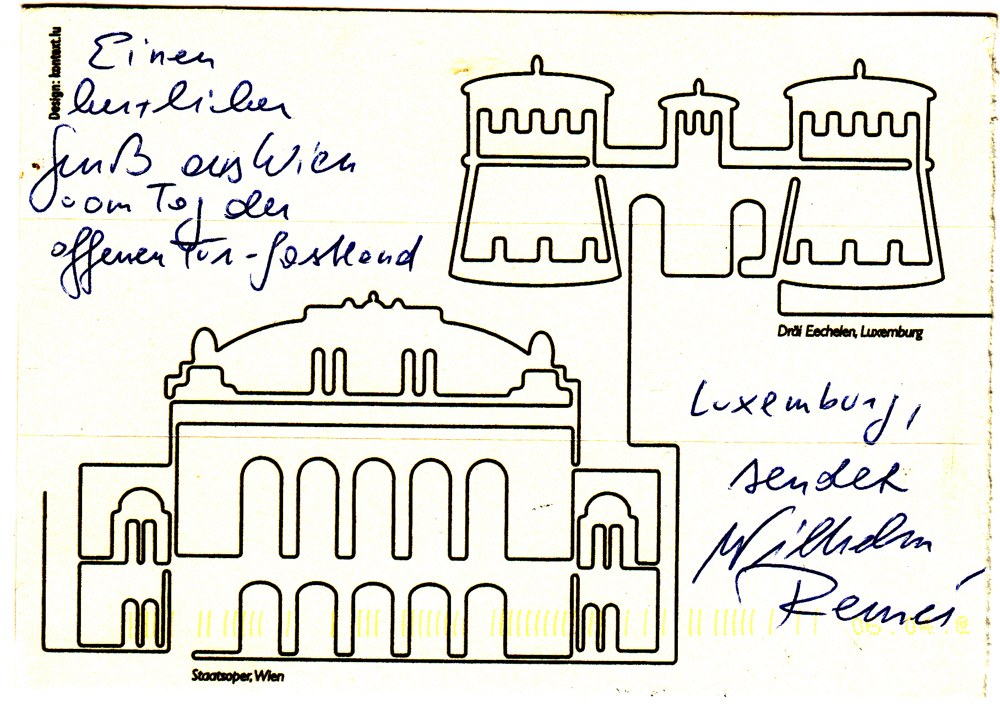 Design: kontext.lu
Einen
herzlichen
Gruß aus Wien
vom Tag der
offenen Tür - Gastland
Dräi Eechelen, Luxemburg
Luxemburg,
sendet
Wilhelm
Staatsoper, Wien